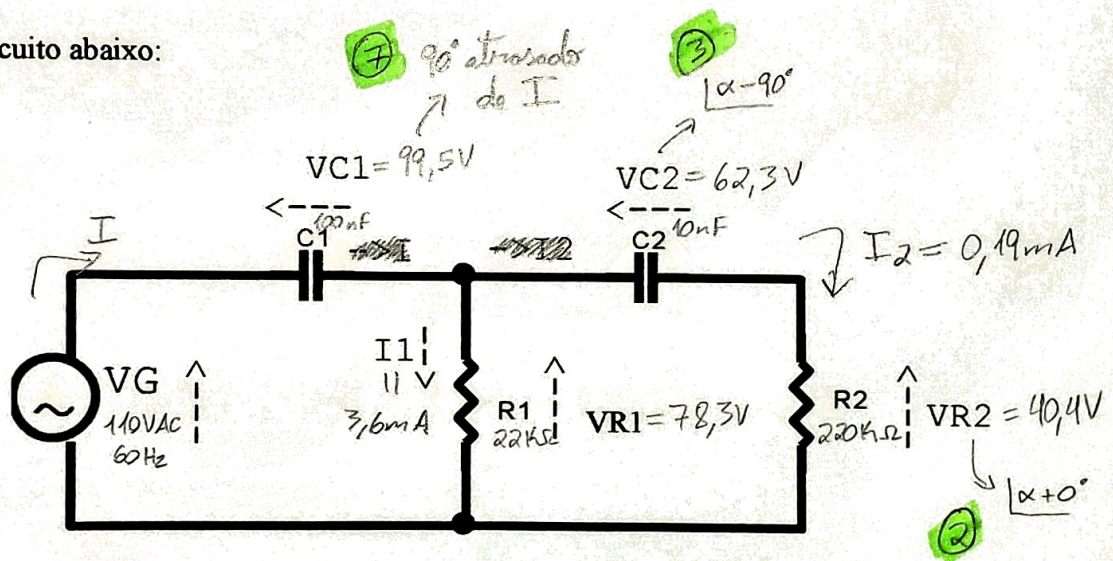 cuito abaixo:
⑦ 90° atrasado
de I
③
α-90°
VC1 = 99,5V
VC2 = 62,3V
I
100nF
C1
10nF
C2
I2 = 0,19mA
VG
110VAC
60Hz
I1
=
3,6mA
R1
22KΩ
VR1 = 78,3V
R2
220KΩ
VR2 = 40,4V
α+0°
②